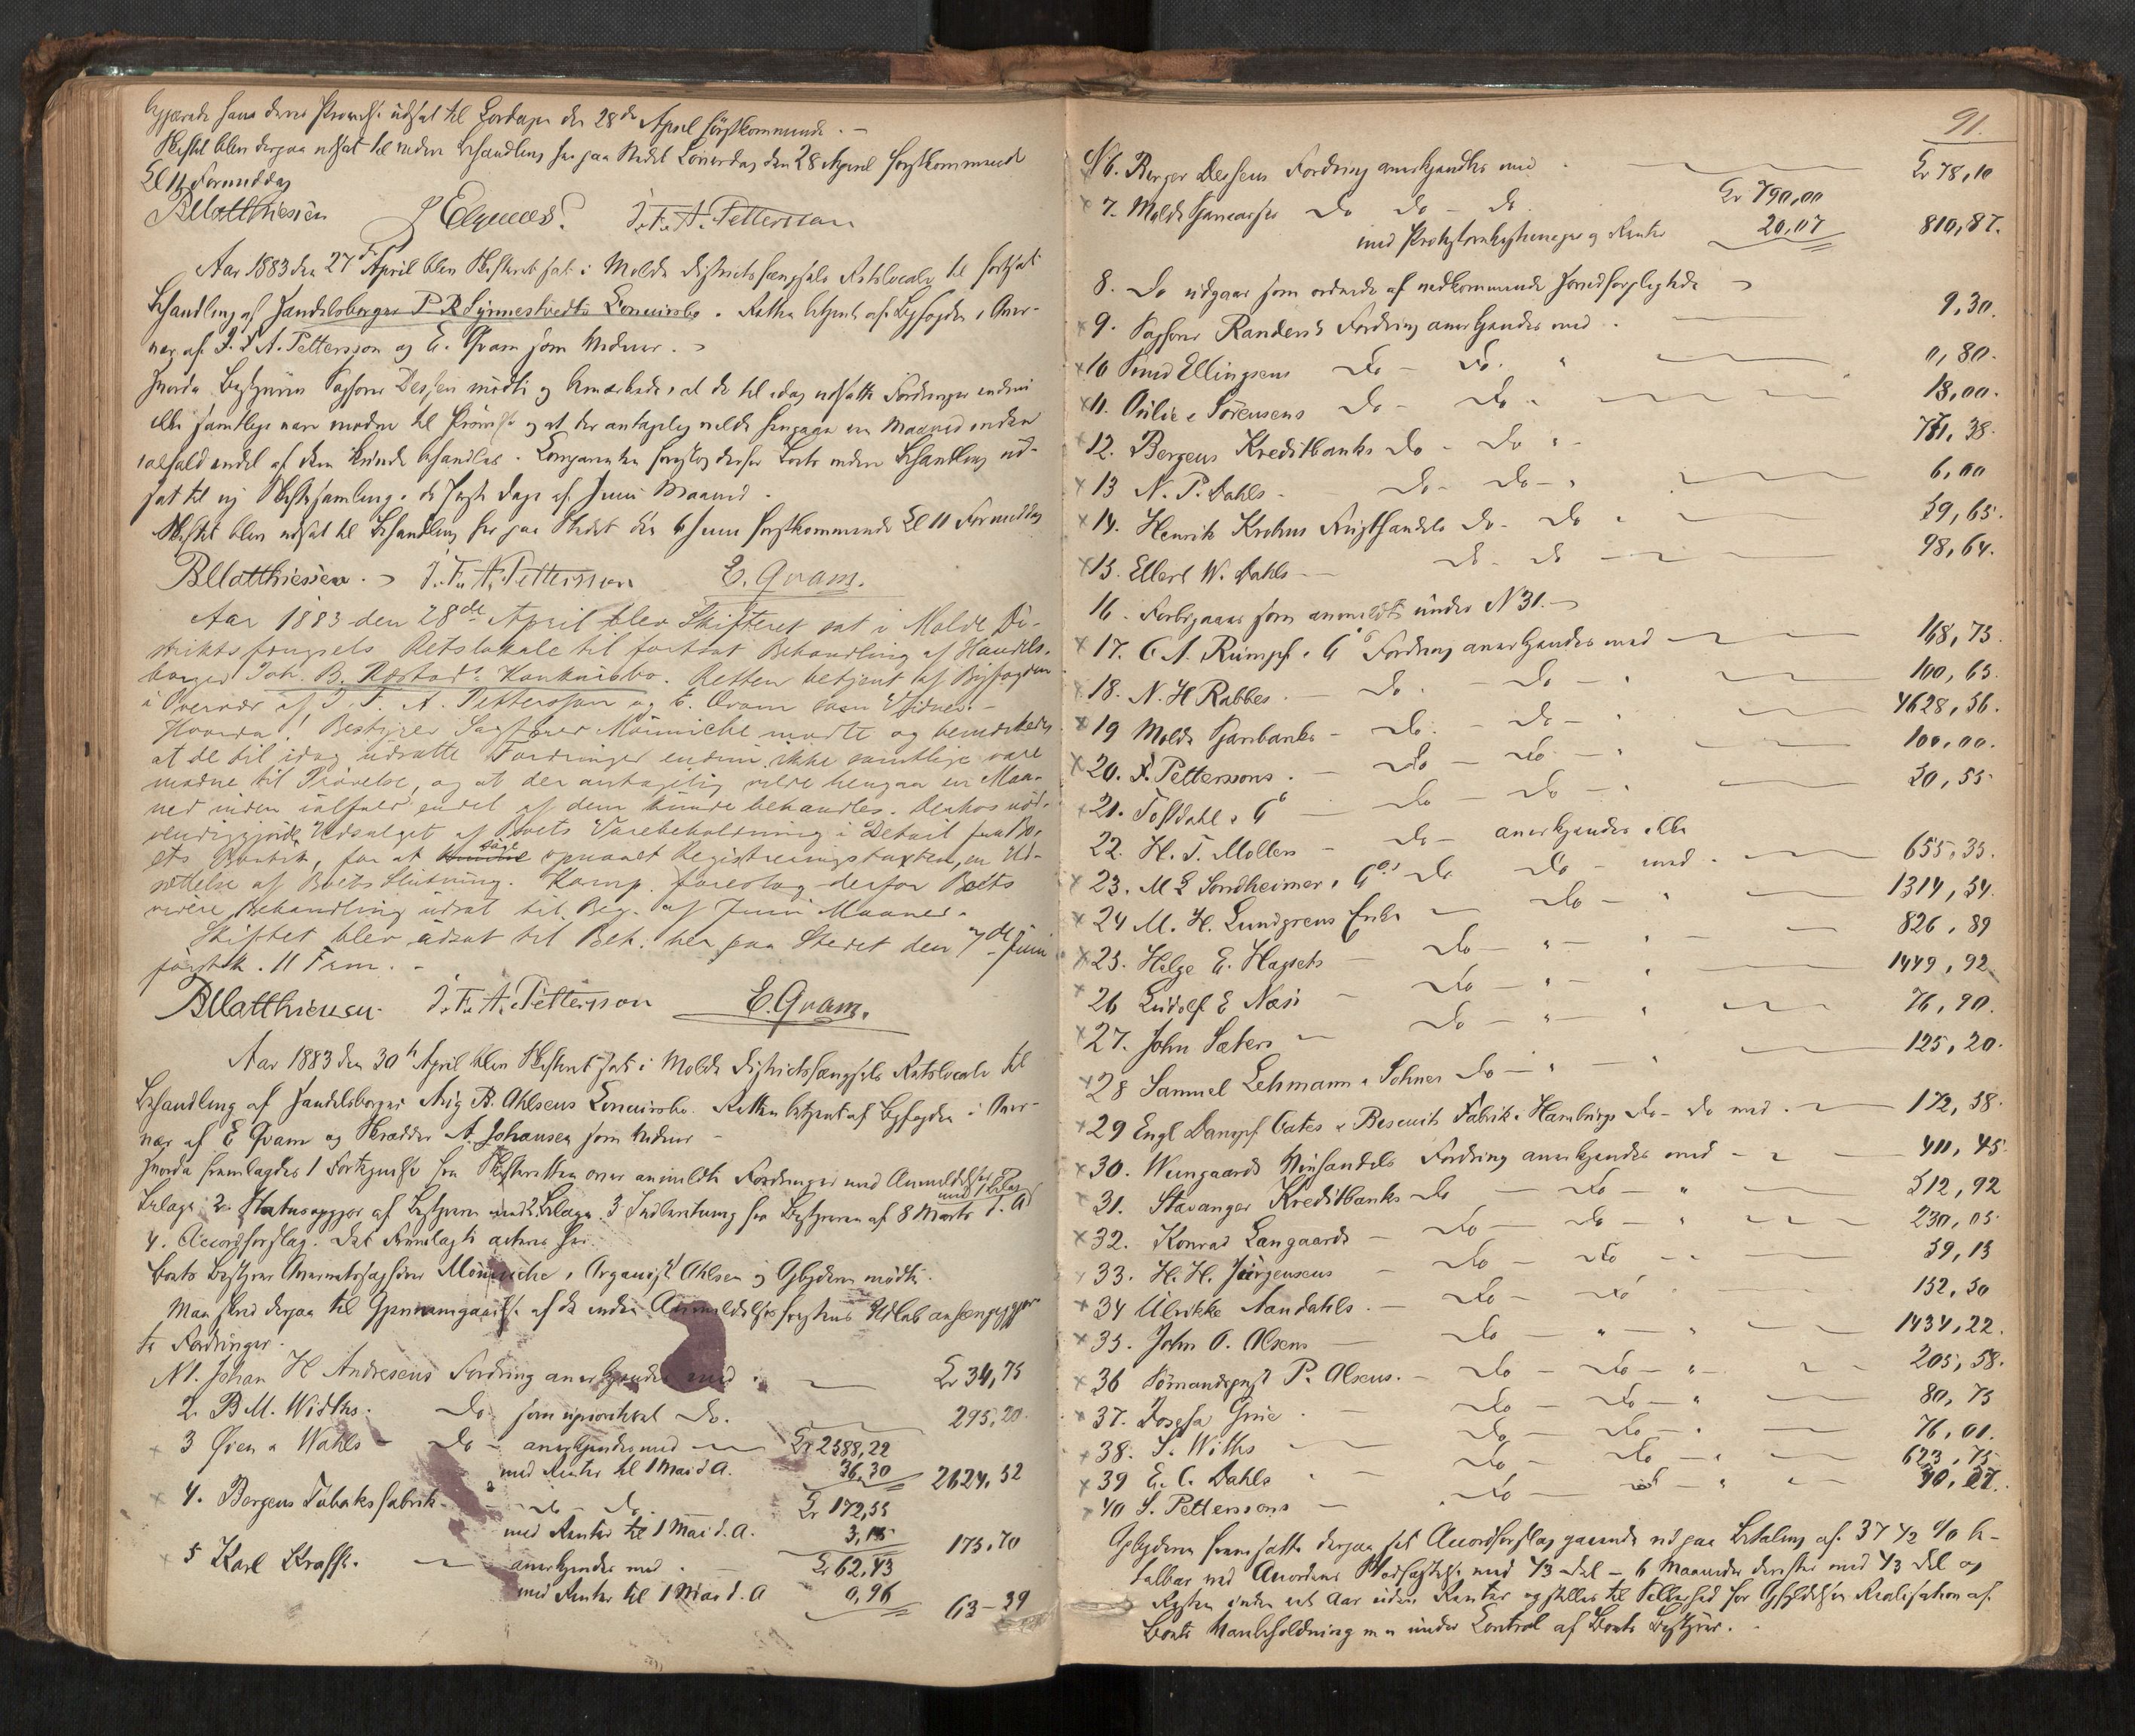 begjærede hans deres Prøvelse udsat til Lørdagen den 28de April førstkommende. –
Skiftet blev derpaa udsat til videre Behandling her paa Stedet Løverdag den 28 April førstkommende
Kl 11 Formiddag
BMatthiessen J.F.A. Pettersson
Aar 1883 den 27de April blev Skifteret sat i Molde Districtsfængsels Retslocale til fortsat
Behandling af Handelsborger P R Synnestvedts Concursbo. Retten betjent af Byfogden i Over-
vær af J. F. A. Pettersson og E. Qvam som Vidner. –
Hvorda Bestyreren Sagfører Dessen mødte og bemærkede, at de til idag udsatte Fordringer endnu
ikke samtlige vare modne til Prøvelse og at der antagelig vilde hengaa en Maaned inden
ialfald endel af dem kunde behandles. Comparenten foreslog derfor Boets videre Behandling ud-
sat til ny Skiftesamling i de første Dage af Juni Maaned.
Skiftet blev udsat til Behandling her paa Stedet den 6 Juni førstkommende Kl 11 Formiddag
BMatthiessen. J.F.A. Pettersson E. Qvam.
Aar 1883 den 28de April blev Skifteret sat i Molde Di-
striktsfængsels Retslokale til fortsat Behandling af Handels-
borger Joh. B. Røstads Konkursbo. Retten betjent af Byfogden
i Overvær af J. F. A. Pettersson og E. Qvam som Vidner. –
Hvorda! Bestyrer Sagfører Münniche mødte og bemærkede
at de til idag udsatte Fordringer endnu ikke samtlige vare
modne til Prøvelse, og at der antagelig vilde hengaa en Maa-
ned inden ialfald endel af dem kunde behandles. Derhos nød-
vendiggjorde Udsalget af Boets Varebeholdning i Detail fra Bo-
ets Boutik, for at faae opnaaet Registreringstaxten, en Ud-
sættelse af Boets Slutning. Komp. foreslog derfor Boets
videre Behandling udsat til Beg. af Juni Maaned.
Skiftet blev udsat til Beh. her paa Stedet den 7de Juni
førstk. 11 Frm. –
BMatthiessen J.F.A. Pettersson E. Qvam.
Aar 1883 den 30te April blev Skifteret sat i Molde Districtsfængsels Retslocale til
Behandling af Handelsborger Aug B. Ahlsens Concursbo. Retten betjent af Byfogden i Over-
vær af E Qvam og Skrædder A. Johansen som Vidner –
Hvorda fremlagdes 1 Fortegnelse fra Skifteretten over anmeldte Fordringer med Anmeldelser
Bilage 2. Statusopgjør af Bestyreren med 2 Bilage. 3 Indberetning fra Bestyreren af 8 Marts d. A. med 1 Bilag
4. Accordforslag. Det Fremlagte acteres her.
Boets Bestyrer Overretssagfører Münniche, Organist Ahlsen og Opbyderen mødte.
Man skred derpaa til Gjennemgaaelse af de inden Anmeldelsesfristens Udløb anhængiggjor-
te Fordringer.
N 1. Johan H Andresens Fordring anerkjendes med Kr 34,75
2. B M. Widths. Do som uprioriteret Do. 295,20.
3 Øien & Wahls – Do – anerkjendes med Kr 2588,22
med Renter til 1 Mai d. A. 36,30 2624,52
4. Bergens Tobaksfabrik – do – do. Kr 172,55
med Renter til 1 Mai d. A. 3,15 175,70
5 Karl Krafft. anerkjendes med Kr 62,43
med Renter til 1 Mai d. A 0,96 63–39
91.
N 6. Birger Dessens Fordring anerkjendtes med Kr 78,10
7. Molde Do Do – Do. Kr 790,00
med og Renter 20,07 810,87.
8. Do udgaar som ordnede af vedkommende
9. Sagfører Randers Fordring anerkjendes med 9,30.
10 Knud Ellingsens Do – Do. 0,80.
11. Oulie & Sörensens Do – Do 18,00.
12. Bergens Kreditbanks Do – Do 781,38.
13 N. P. Dahls – Do – Do – 6,00
14. Henrik Krohns Do – Do 59,65.
15. Ellert W. Dahls – Do – Do 98,64.
16. Forbigaaes som anmeldt under N 31. –
17. C A. Rümpf & Co Fordring anerkjendes med 168,75.
18. N. H Rabbes. – Do. – Do – 100,65.
19 Molde Sparebanks – Do. – Do – 4628,56.
20. F. Petterssons. – Do – Do – 100,00.
21. Toftdahl & Co – Do – Do – 50,55
22. H. T. Mollers – Do – anerkjendes ikke
23. M L Sondheimer & Co's Do Do – med 655,35.
24 M. H. Lundgrens Enke – Do – 1314,54.
25. Helge E. Hagsets – Do – 826,89
26 Ludolf E Næsi – Do – 1449,92
27. John Sæters – Do – 76,90.
28 Samuel Lehmann & Sohnes Do – 125,20.
29 Engl Dampf Cakes & Biscuits Fabrik i Hamburgs Do – Do med 172,58.
30. Wiingaards Vinhandels Fordring anerkjendes med 40,45.
31. Stavanger Kreditbanks Do – Do – 512,92
32. Konrad Langaards – Do – Do – 230,05.
33. H. H. Jürgensens – Do – Do 59,15
34 Ulrikke Aandahls. – Do – Do 152,50
35. John O. Olsens – Do – 1434,22.
36 P. Olsens. – Do – Do – 205,58.
37. Josefa – Do – Do – 80,75
38. S. Withs – Do – Do – 76,01.
39 E. C. Dahls – Do – Do – 623,75
40 S. Petterssons – Do – Do 90,27.
Opbyderen fremsatte derpaa sit Accordforslag gaaende ud paa Betaling af 37 1/2 % be-
talbar ved Accordens Stadfæstelse med 1/3 Del – 6 Maaneder derefter med 1/3 Del og
Resten inden et Aar uden Renter og stilles til Sikkerhed for Opfyldelsen Realisation af
Boets Varebeholdning m m under Control af Boets Bestyrer.